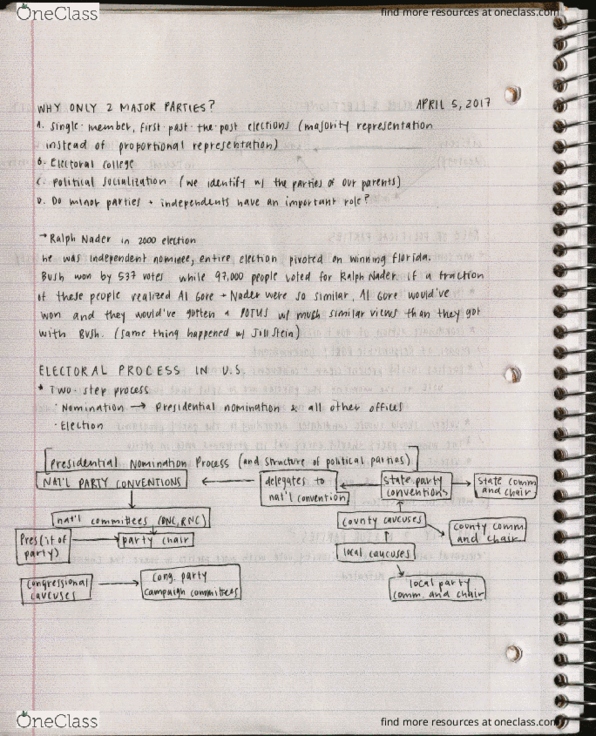 OneClass
find more resources at oneclass.com
WHY ONLY 2 MAJOR PARTIES? APRIL 5, 2017
A. Single-member, first past the post elections (majority representation
instead of proportional representation)
B. Electoral college
C. Political socialization (we identify w/ the parties of our parents)
D. Do minor parties + independents have an important role?
→ Ralph Nader in 2000 election
he was independent nominee, entire election pivoted on winning Florida.
Bush won by 537 votes while 97,000 people voted for Ralph Nader. if a fraction
of these people realized Al Gore + Nader were so similar, Al Gore would've
won and they would've gotten a POTUS w/ much similar views than they got
with Bush. (same thing happened w/ Jill Stein)
ELECTORAL PROCESS IN U.S.
* Two-step process
· Nomination → Presidential nomination & all other offices
· Election
Presidential Nomination Process (and structure of political parties)
NAT'L PARTY CONVENTIONS
delegates to
nat'l convention
state party
conventions
state comm
and chair
nat'l committees (DNC, RNC)
county caucuses
county comm
and chair
Pres (if of
party)
party chair
local caucuses
congressional
caucuses
cong. party
campaign committees
local party
comm. and chair
OneClass
find more resources at oneclass.com